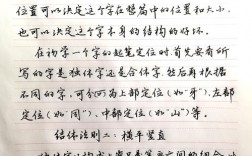 位置可以决定这个字在整篇中的位置和大小,
也可以决定这个字本身的结构的好坏。
在初学一个字的起笔定位时,首先要看所
写的字是独体字还是合体字,然后再根据
不同的字,可分何为上部定位(如“牙”)、左部
定位(如“同”)、中部定位(如“山”)等。
结体法则二:横平竖直